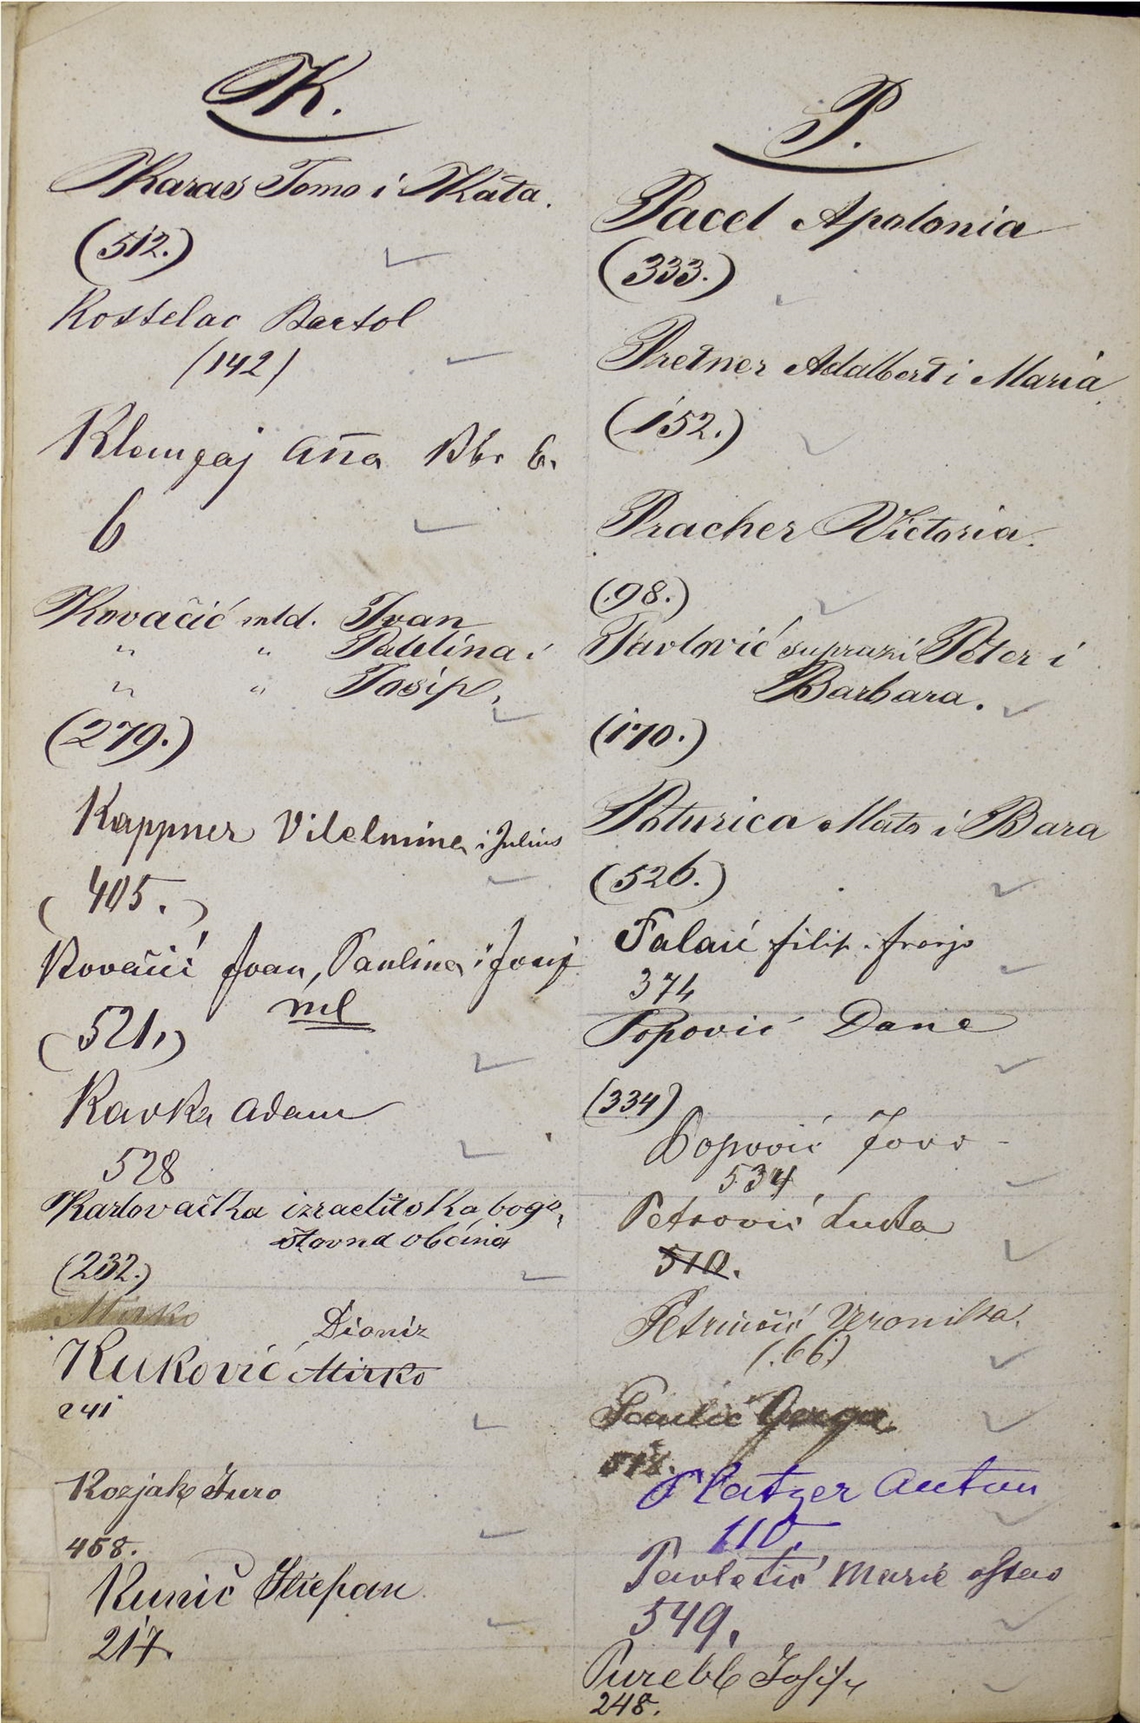 K.
Karas Tomo i Kata.
(512.)
Kostelac Bartol
(142)
Klemgaj Anna Kbr 6.
6
Kovačić mld. Ivan
" " Paulina i
" " Josip,
(279.)
Kappner Vilelmina i Julius
(405.)
Kovačić Ivan, Paulina i Josip
ml
(521.)
Kavka Adam
528
Karlovačka izraelitska bogo,
štovna občina
(232.)
Mirko
Dioniz
Kuković Mirko
241
Kozjak Juro
458.
Kunić Stiepan
217.
P.
Pacel Apolonia
(333.)
Pretner Adalbert i Maria.
(152.)
Pracher Victoria.
(98.)
Pavlović supruzi Peter i
Barbara.
(170.)
Poturica Mato i Bara
(526.)
Filip i Franjo
374
Popović Dane
(334)
Popović Jovo
534
Petrović Luka
510.
Veronika.
(66)
518.
Platzer Antun
110.
Pavletić Marie
549.
Purebl Josip
248.